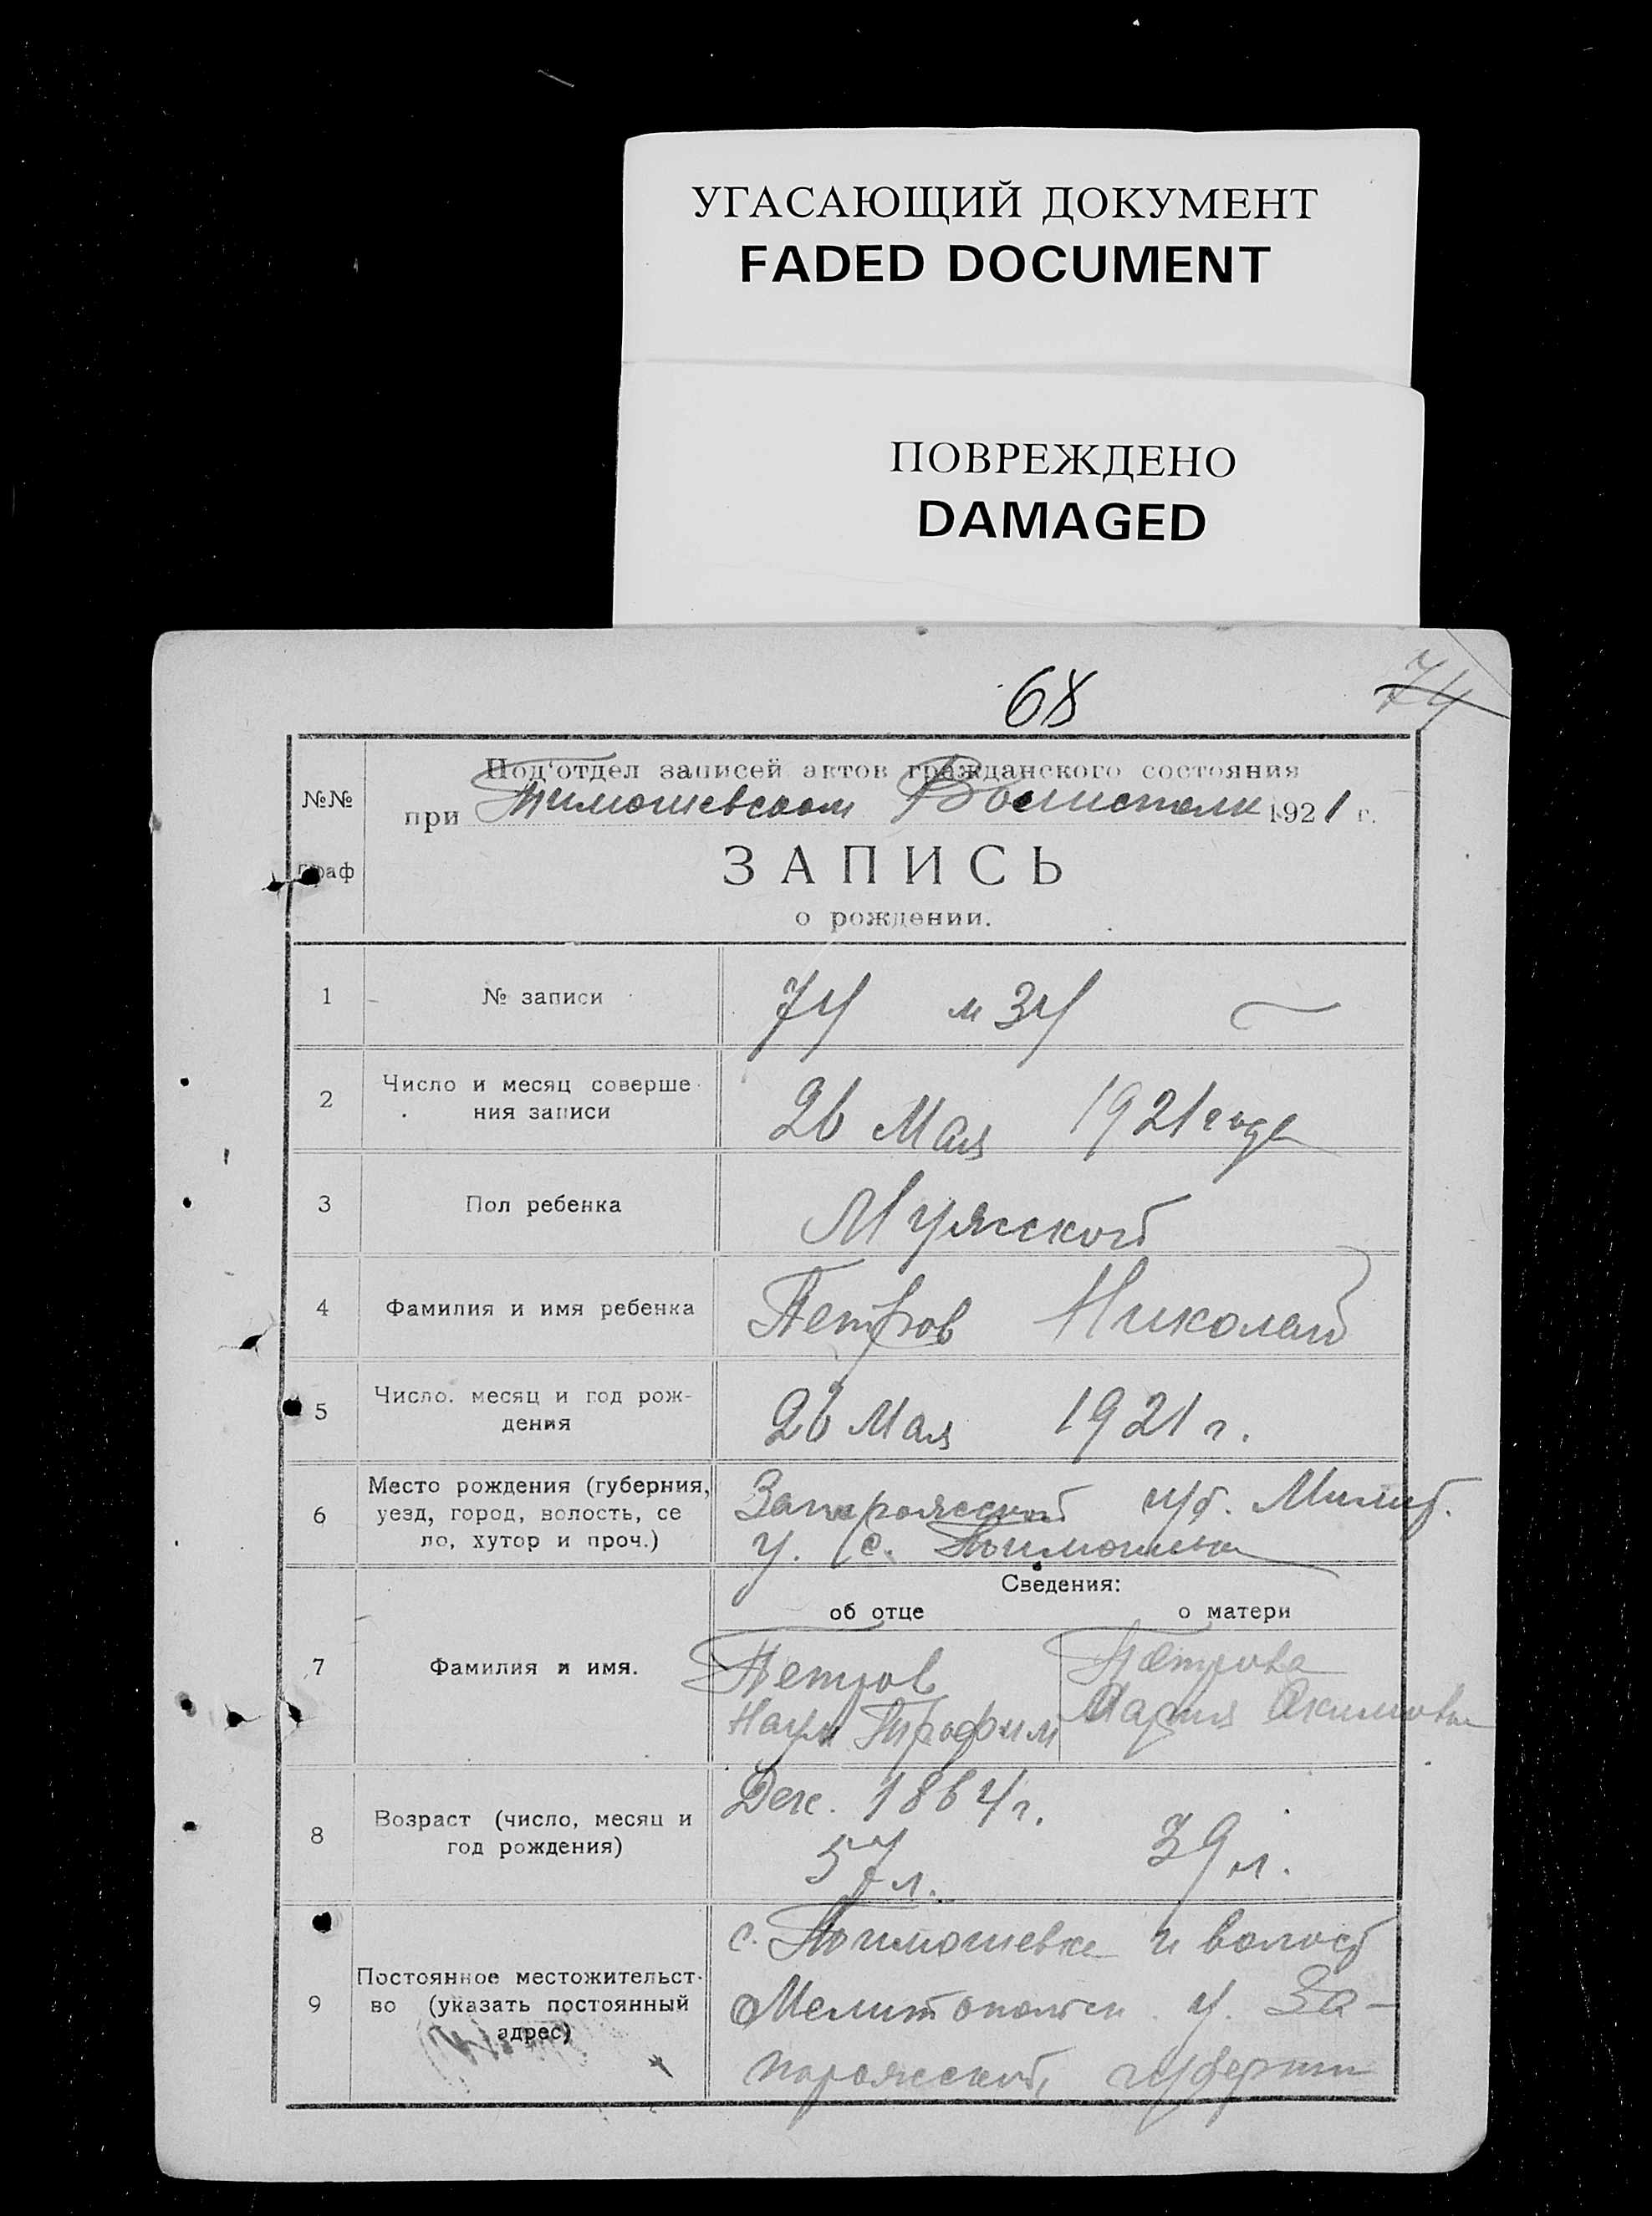 УГАСАЮЩИЙ ДОКУМЕНТ
FADED DOCUMENT
ПОВРЕЖДЕНО
DAMAGED
68
74
№№
граф
Под'отдел записей актов гражданского состояния
при Тимошевском Волисполк 1921 г.
ЗАПИСЬ
о рождении.
1
№ записи
74 м 34
2
Число и месяц соверше
ния записи
26 Мая 1921 года
3
Пол ребенка
Мужской
4
Фамилия и имя ребенка
Петров Николай
5
Число. месяц и год рож-
дения
26 Мая 1921 г.
6
Место рождения (губерния,
уезд, город, волость, се
ло, хутор и проч.)
Запорожской губ. Мелит.
у. с. Тимошевка
Сведения:
об отце
о матери
7
Фамилия и имя.
Петров
Наум Трофим
Петрова
Мария Акимовна
8
Возраст (число, месяц и
год рождения)
Дек. 1864 г.
57 л.
39 л.
9
Постоянное местожительст-
во (указать постоянный
адрес)
с. Тимошевка и волост
Мелитопольск. у. За-
порожской, губернии